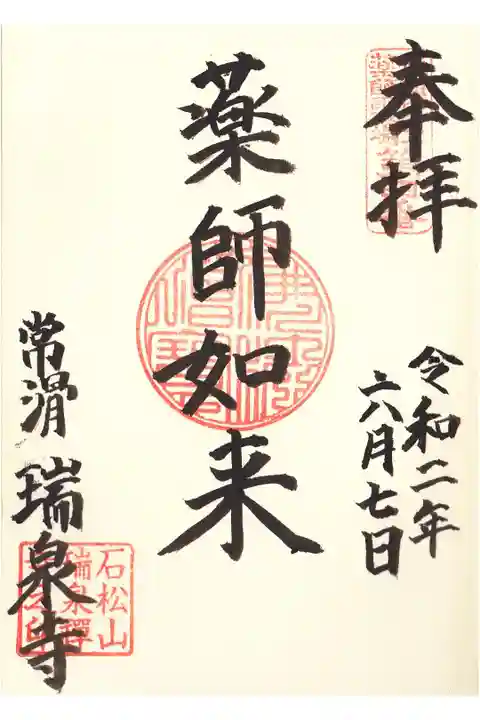 奉拝
令和二年
六月七日
薬師如来
常滑 瑞泉寺
石松山
瑞泉禅